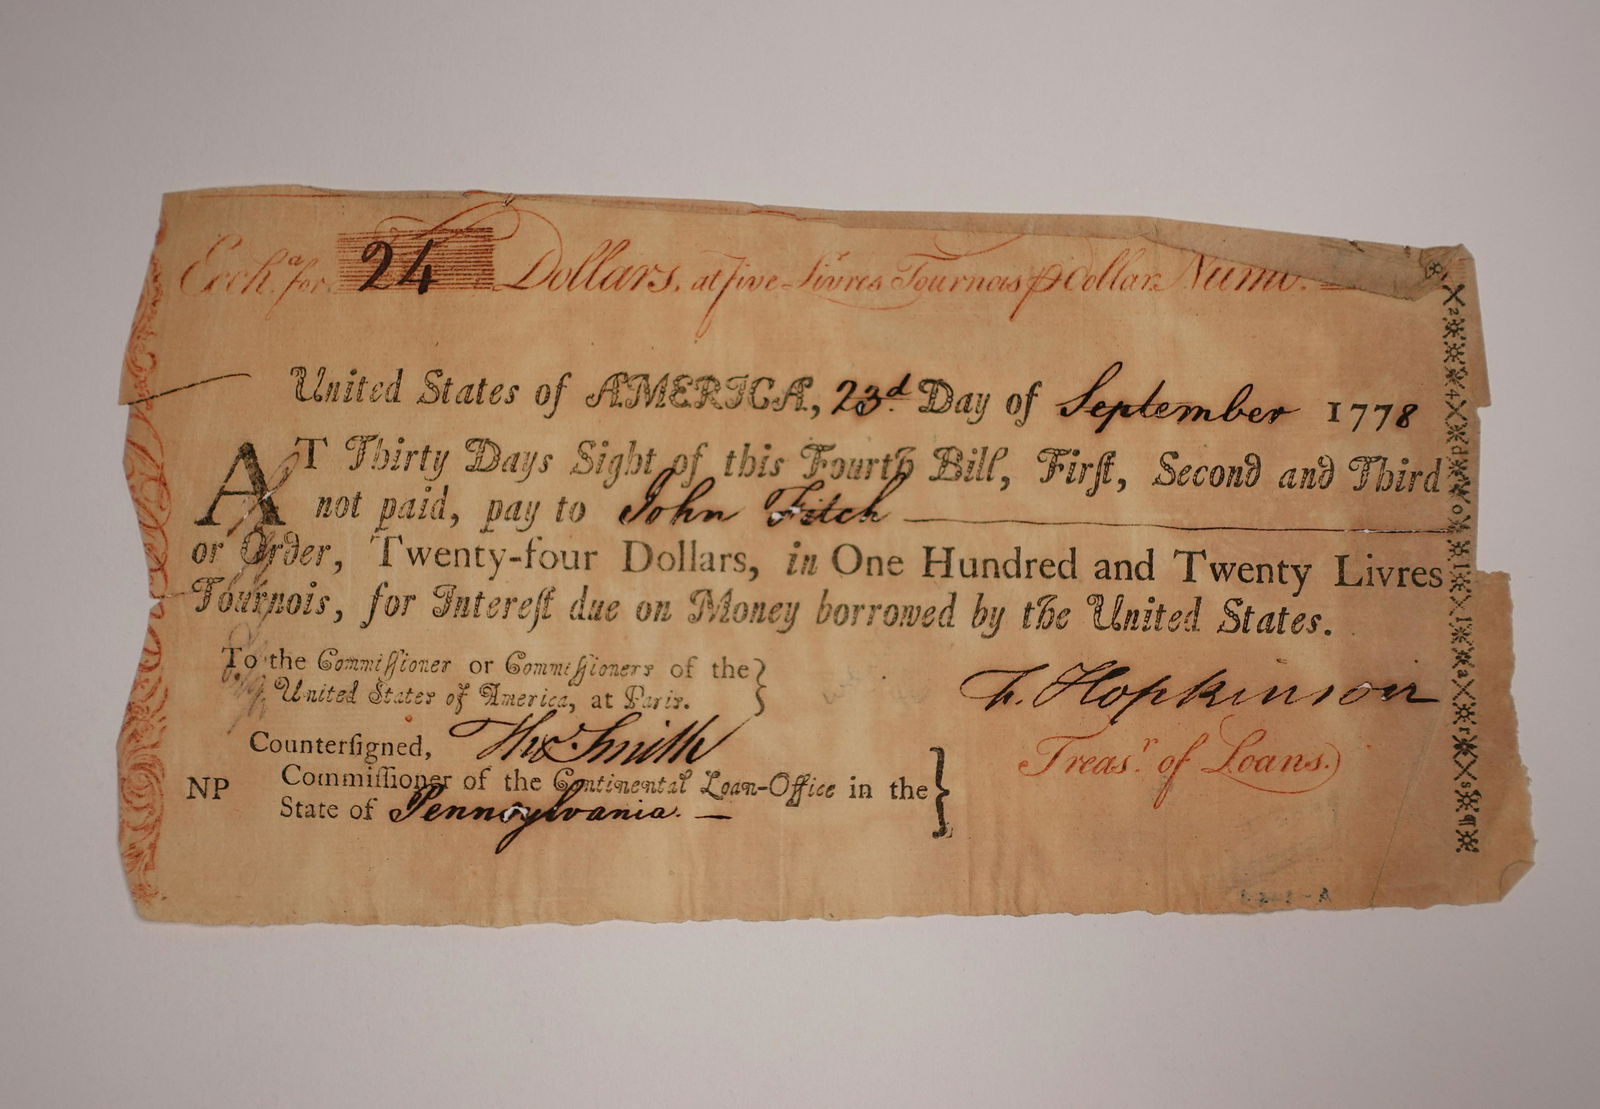 Exchᵃ. for 24 Dollars, at five Livres Tournois ⅌ dollar. Numo.
United States of AMERICA, 23ᵈ. Day of September 1778
AT Thirty Days Sight of this Fourth Bill, Firſt, Second and Third
not paid, pay to John Fitch
or Order, Twenty-four Dollars, in One Hundred and Twenty Livres
Tournois, for Intereſt due on Money borrowed by the United States.
To the Commiſſioner or Commiſſioners of the
United States of America, at Paris.
F. Hopkinson
Treasʳ. of Loans.
Counterſigned, Thoˢ. Smith
NP Commiſſioner of the Continental Loan-Office in the
State of Pennsylvania.